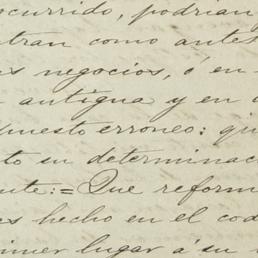 ocurrido, podrian
tran como antes
es negocios, ó en
antigua y en
uesto erroneo: qu
to su determinac
nte:= Que reform
es hecho en el cod
rimer lugar á su